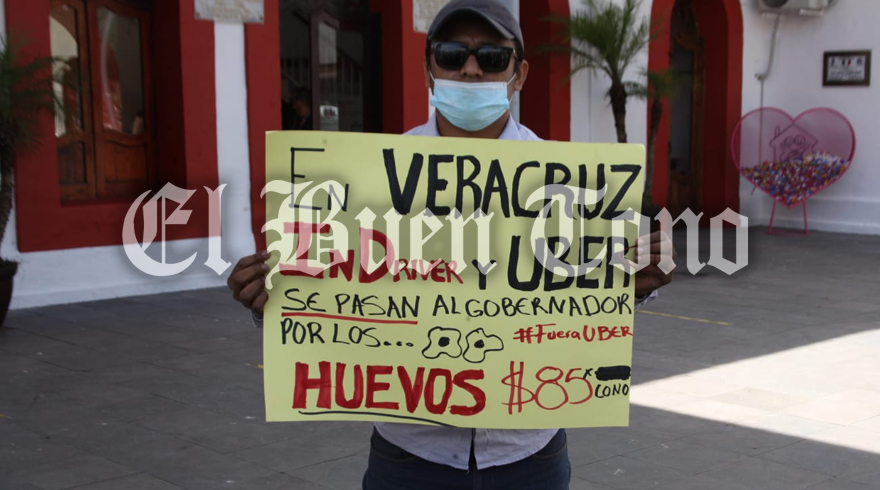 EN VERACRUZ
InDRIVER Y UBER
SE PASAN AL GOBERNADOR
POR LOS...
#FueraUBER
HUEVOS $85 x CONO
El Buen Tono